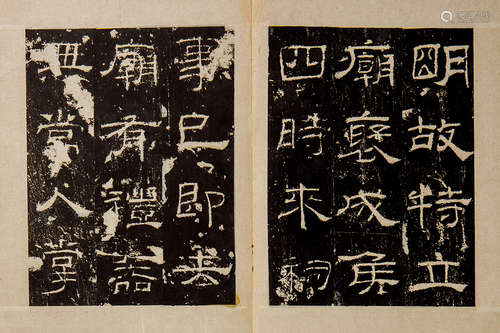 朙故特立
廟襃成侯
四時來祠
事已即去
廟有禮器
無常人掌